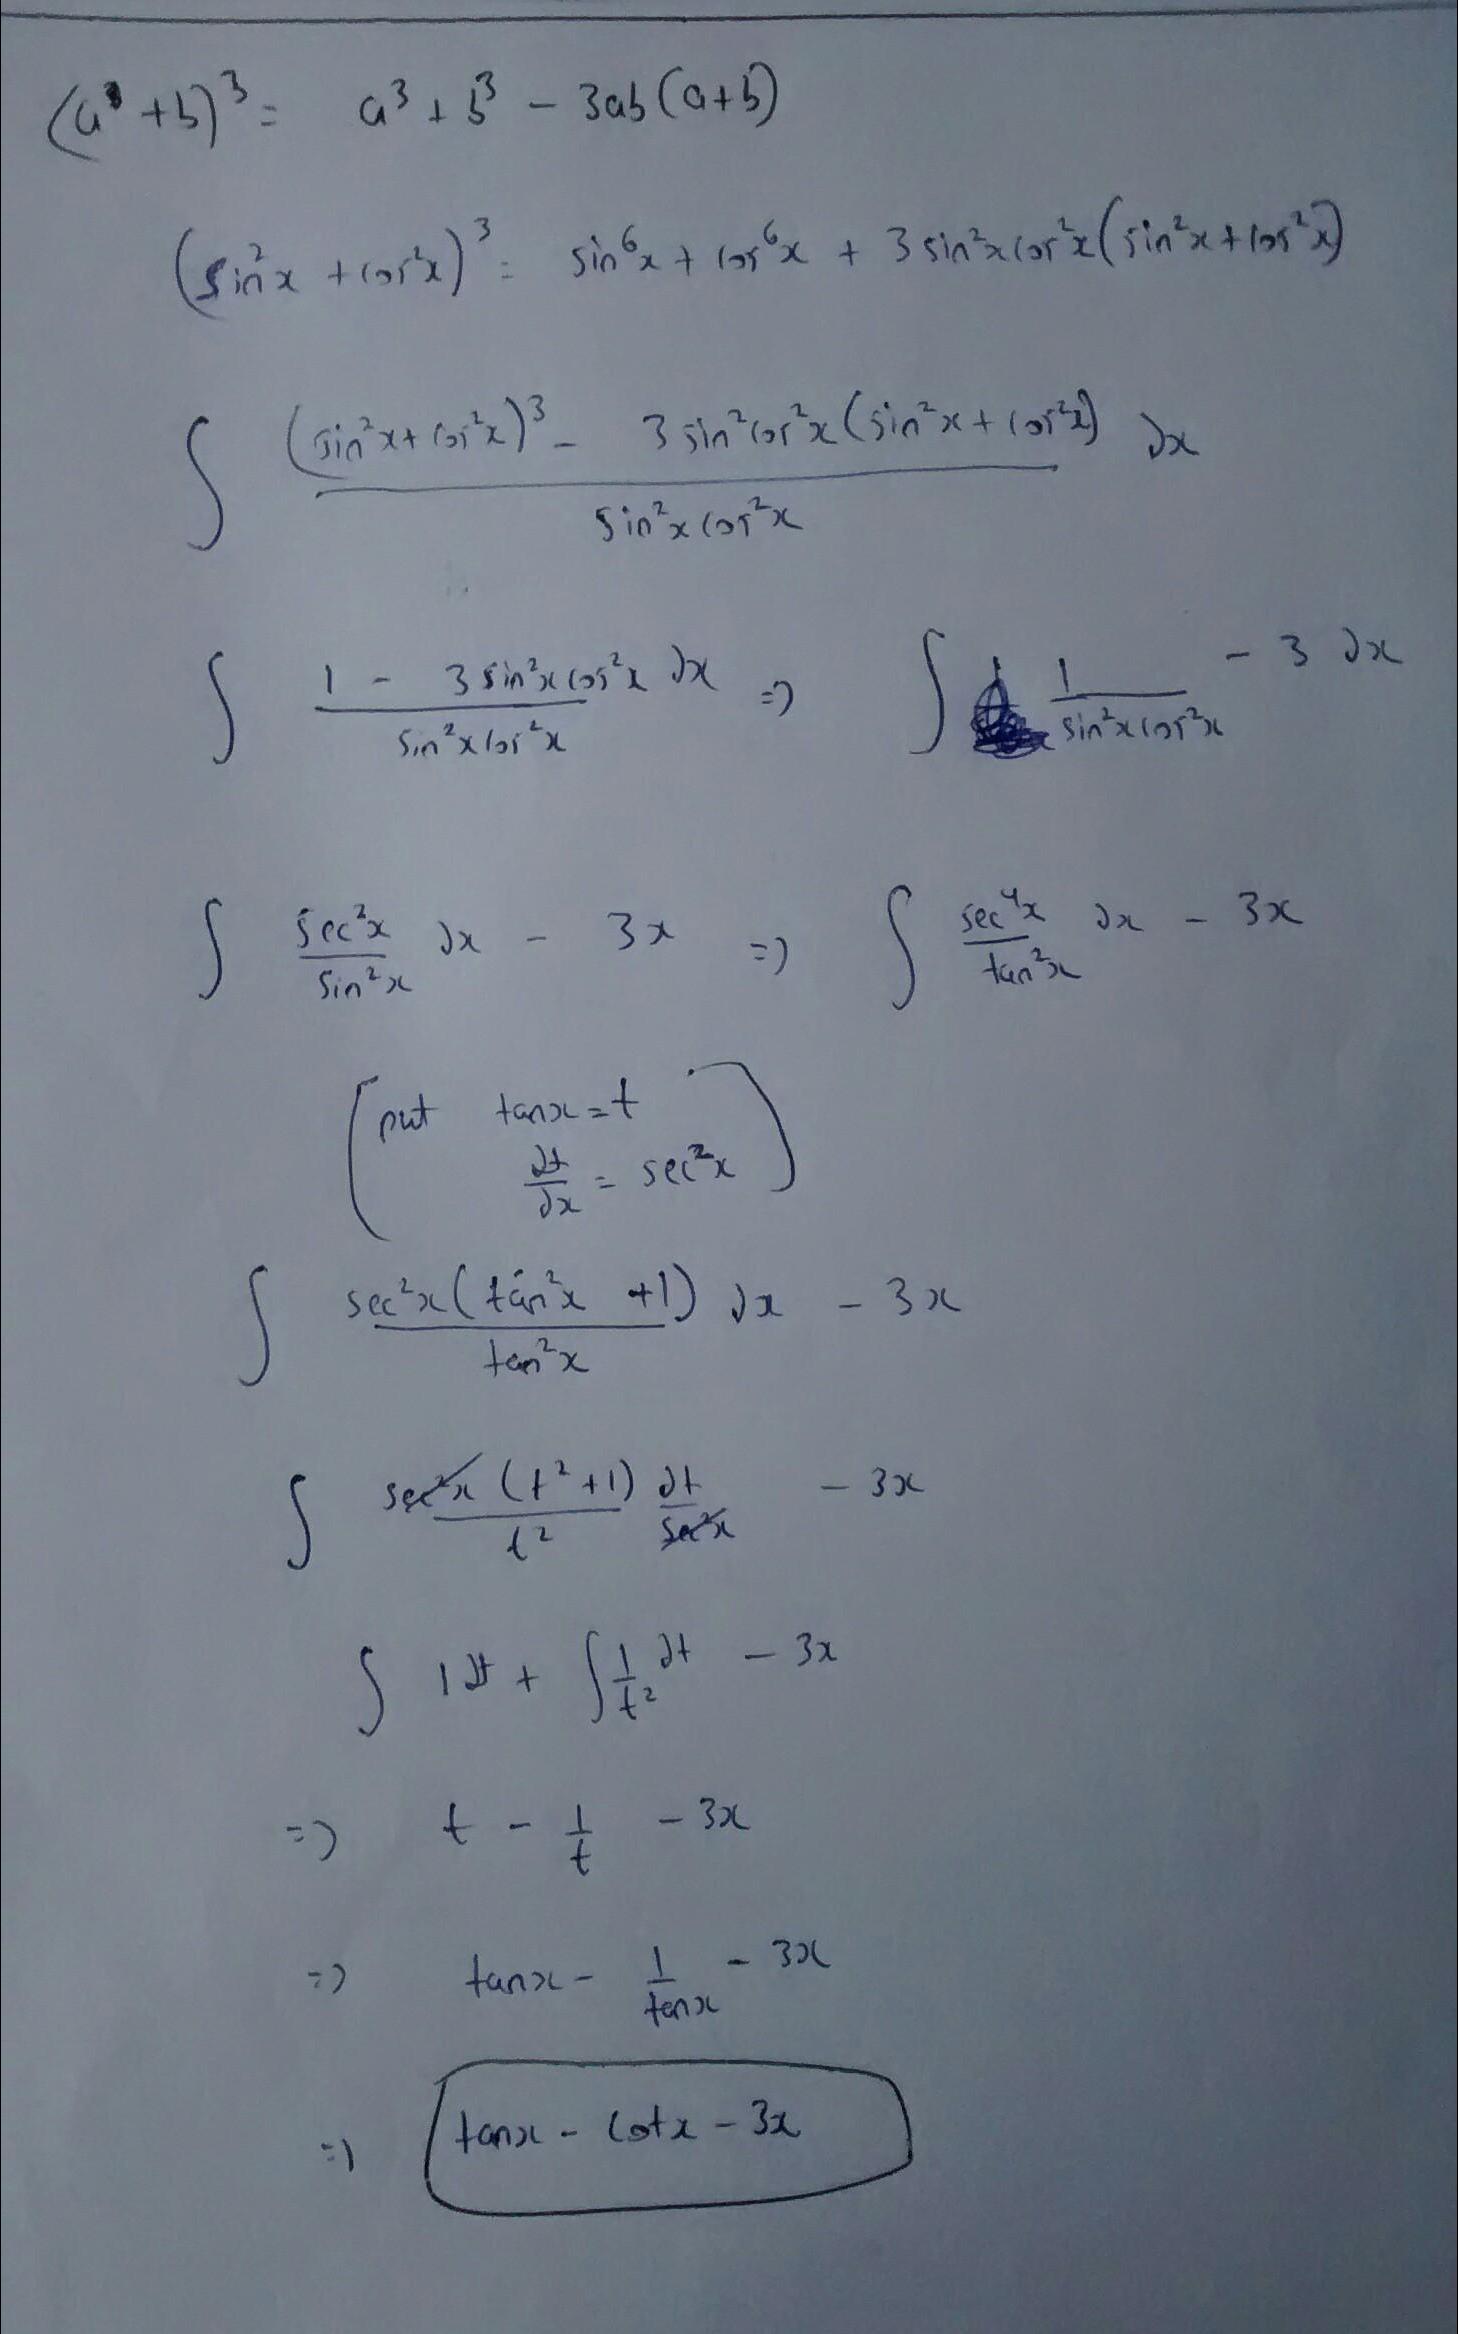 (a + b)³ = a³ + b³ - 3ab(a+b)
(sin²x + cos²x)³ = sin⁶x + cos⁶x + 3 sin²x cos²x (sin²x + cos²x)
∫ ((sin²x + cos²x)³ - 3 sin² cos²x (sin²x + cos²x)) / (sin²x cos²x) dx
∫ (1 - 3 sin²x cos²x) / (sin²x cos²x) dx => ∫ 1 / (sin²x cos²x) - 3 dx
∫ sec²x / sin²x dx - 3x => ∫ sec⁴x / tan²x dx - 3x
(put tanx = t
dt/dx = sec²x)
∫ sec²x (tan²x + 1) / tan²x dx - 3x
∫ sec²x (t² + 1) / t² dt / sec²x - 3x
∫ 1 dt + ∫ 1/t² dt - 3x
=> t - 1/t - 3x
=> tanx - 1/tanx - 3x
=> tanx - cotx - 3x